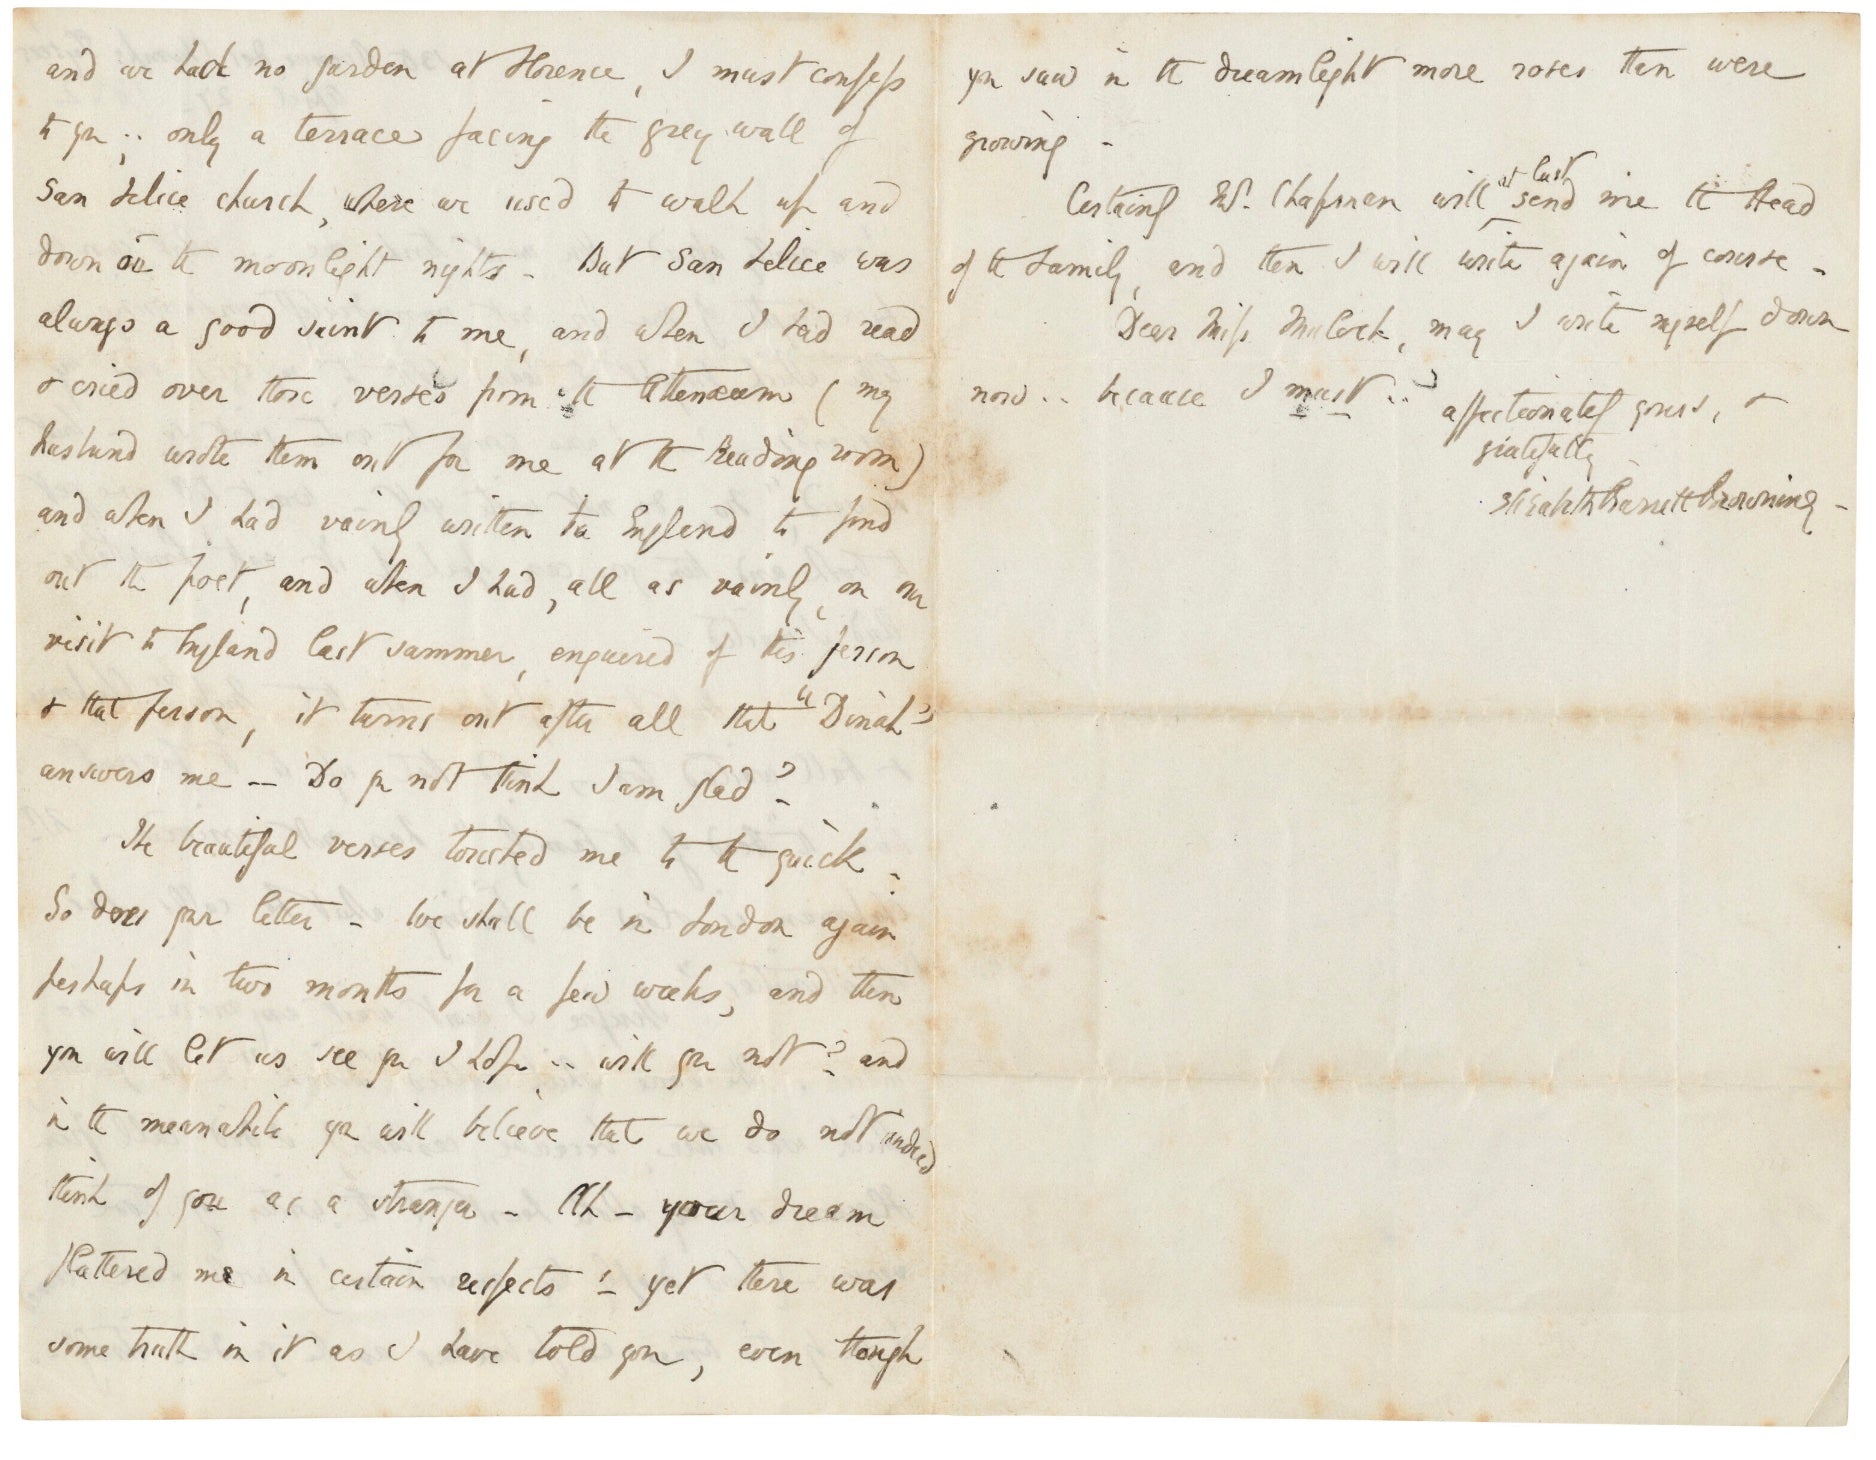 and we had no garden at Florence, I must confess
to you,.. only a terrace facing the grey wall of
San Felice church, where we used to walk up and
down on the moonlight nights – But San Felice was
always a good saint to me, and when I had read
& cried over those verses from the Athenæum (my
husband wrote them out for me at the reading room)
and when I had vainly written to England to find
out the poet, and when I had, all as vainly, on our
visit to England last summer, enquired of this person
& that person, it turns out after all that "Dinah"
answers me — Do you not think I am glad?
The beautiful verses touched me to the quick –
So does your letter – We shall be in London again
perhaps in two months for a few weeks, and then
you will let us see you I hope .. will you not? and
in the meanwhile you will believe that we do not indeed
think of you as a stranger – Ah – your dream
flattered me in certain respects! – yet there was
some truth in it as I have told you, even though
you saw in the dreamlight more roses than were
growing –
Certainly Mr. Chapman will at last send me the Head
of the Family, and then I will write again of course –
Dear Miss Mulock, may I write myself down
now .. because I must ..?
affectionately yours, &
gratefully
Elizabeth Barrett Browning –